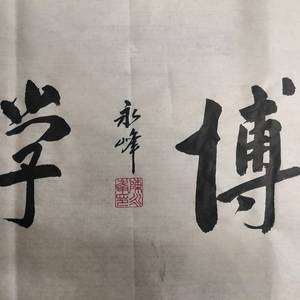 博
永峰
学